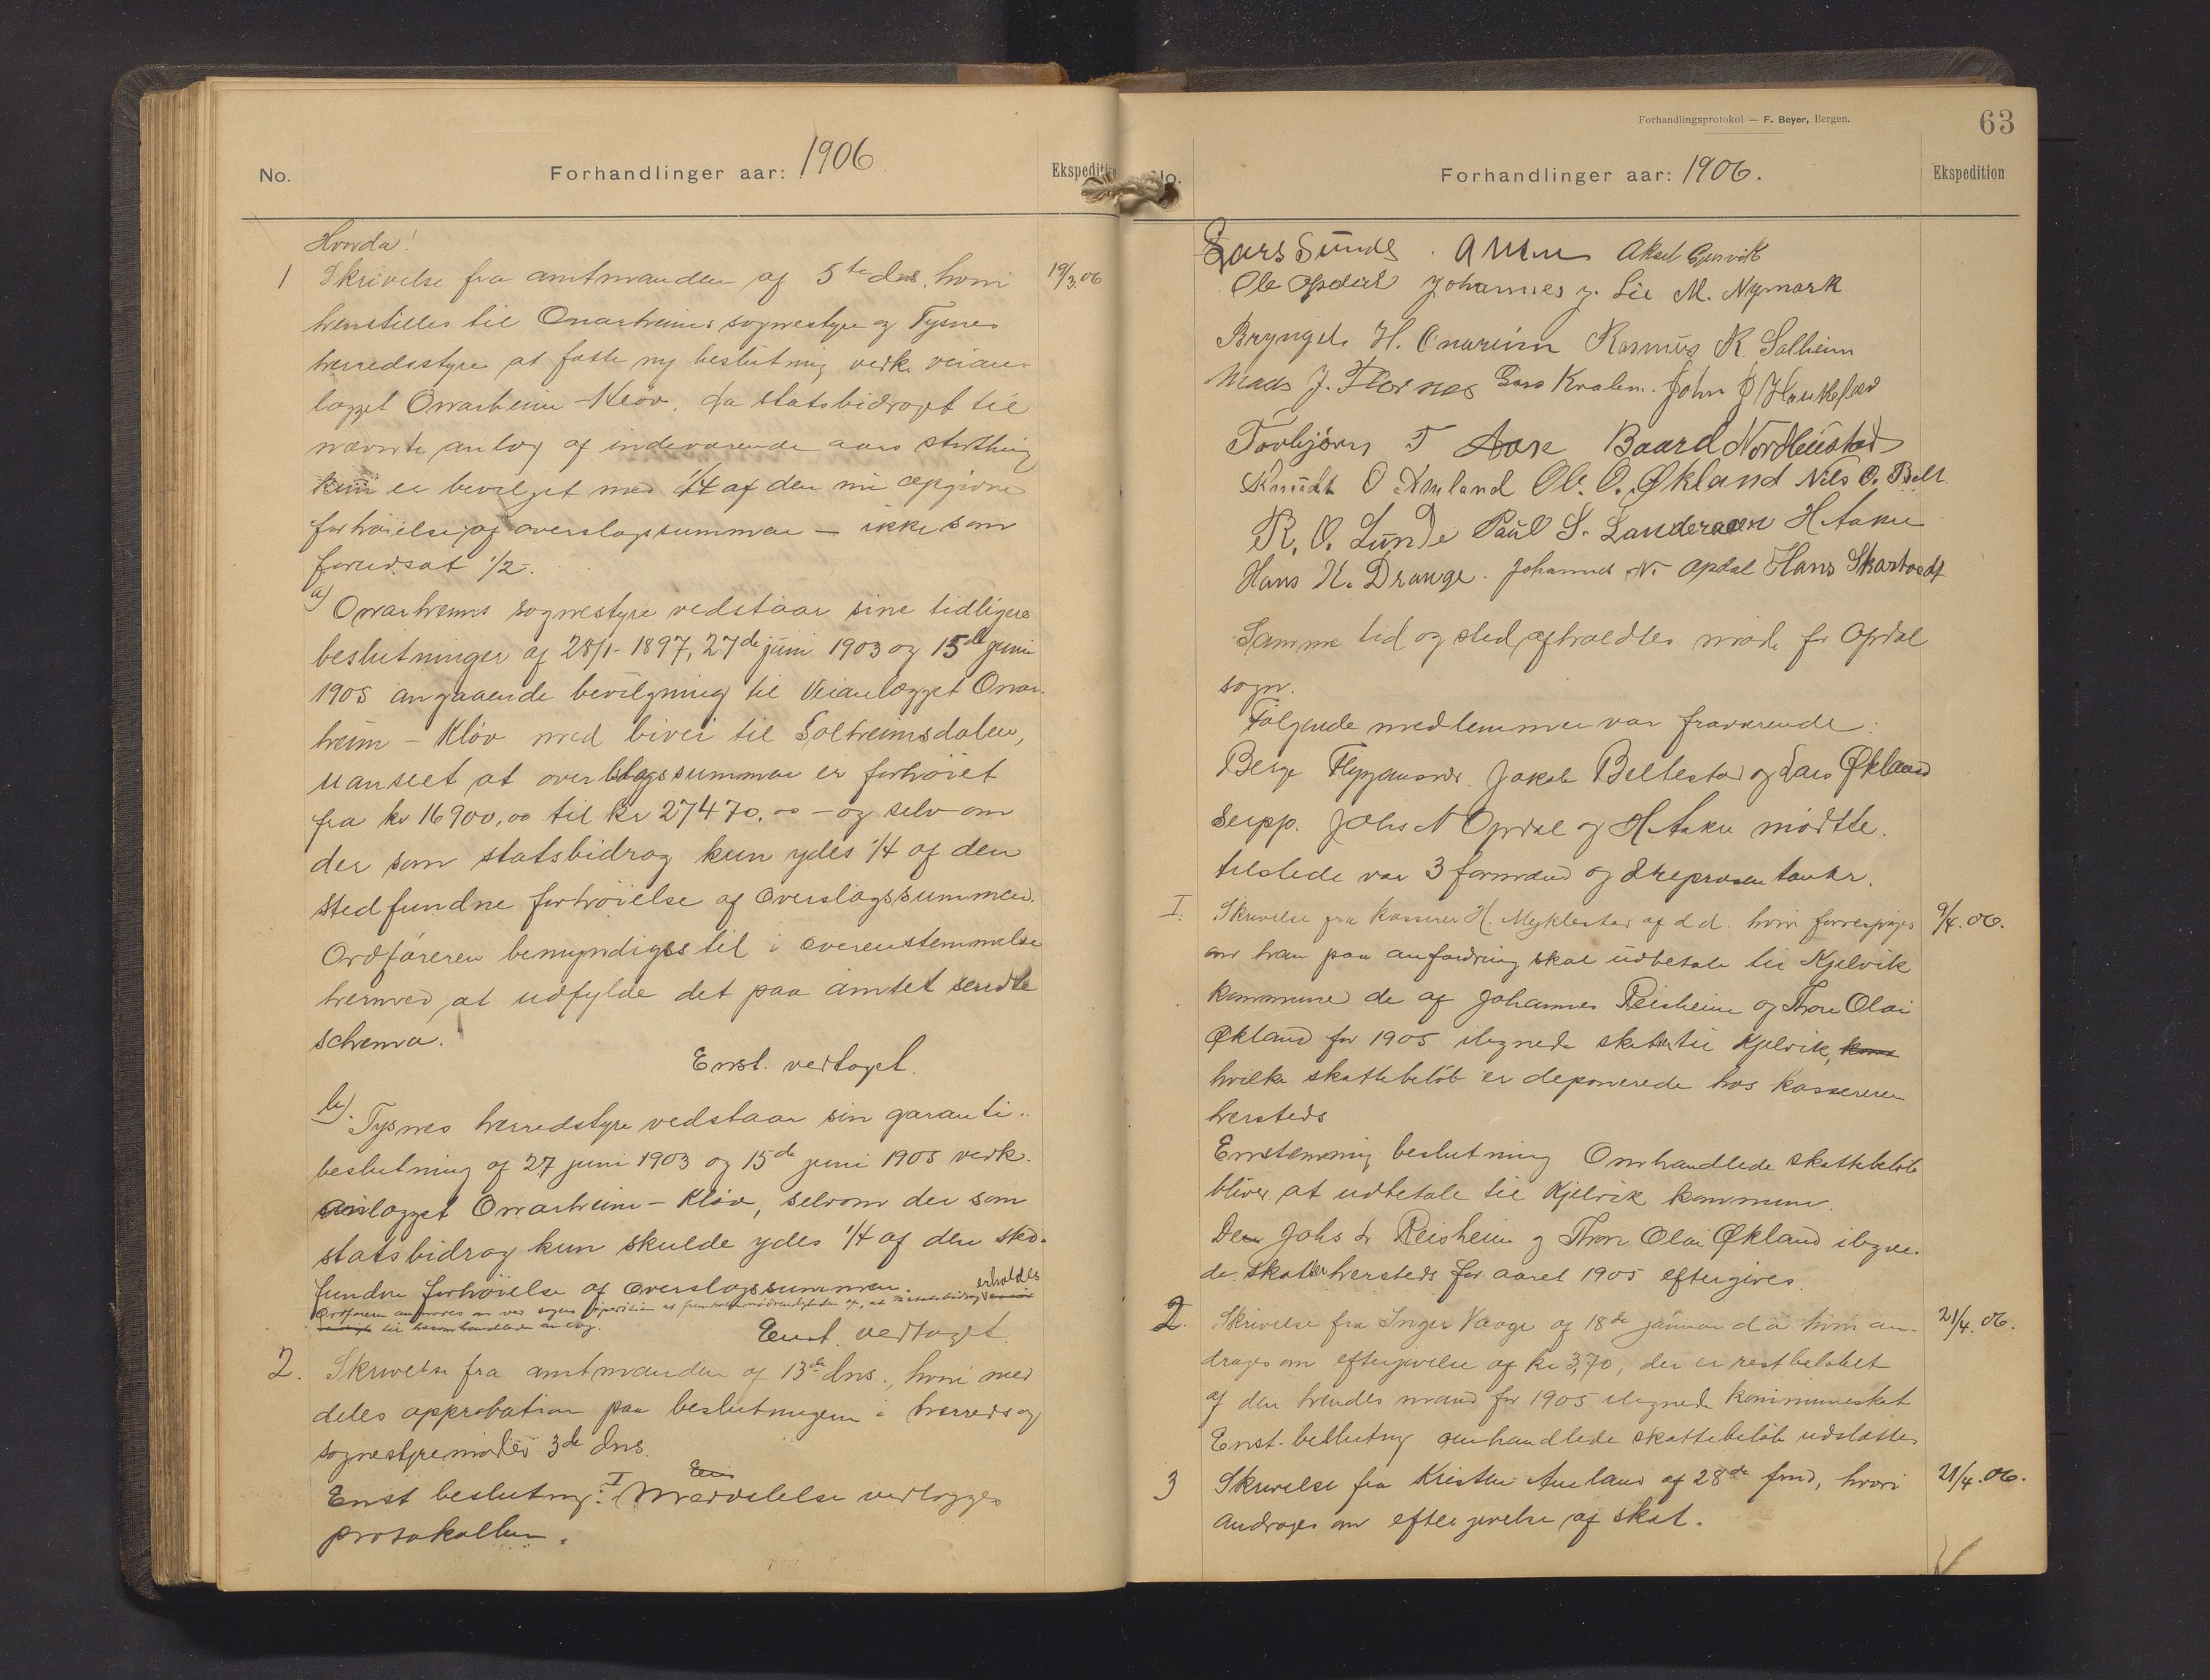 No.
Forhandlinger aar: 1906
Ekspediti
Hvorda!
1 Skrivelse fra amtmanden af 5te dns. hvori 19/3.06
henstilles til Onarheims sognestyre og Tysnes
herredsstyre at fatte ny beslutning vedk. veian-
lægget Onarheim - Kløv, da statsbidraget til
nævnte anlæg af indeværende aars storthing
kun er bevilget med 1/4 af den nu opgivne
forhøielse af overslagssummen – ikke som
forudsat 1/2.
a) Onarheims sognestyre vedstaar sine tidligere
beslutninger af 28/1- 1897, 27de juni 1903 og 15de juni
1905 angaaende bevilgning til Veianlægget Onar-
heim - Kløv med bivei til Solheimsdalen,
uanseet at overslagssummen er forhøiet
fra kr 16900,00 til kr 27470,00 – og selv om
der som statsbidrag kun ydes 1/4 af den
stedfundne forhøielse af overslagssummen.
Ordføreren bemyndiges til i overenstemmelse
hermed at udfylde det paa amtet sendte
schema.
Enst. vedtaget.
b). Tysnes herredstyre vedstaar sin garanti-
beslutning af 27 juni 1903 og 15de juni 1905 vedk.
anlægget Onarheim - Kløv, selvom der som
statsbidrag kun skulde ydes 1/4 af den sted-
fundne forhøielse af overslagssummen. erholdes
Ordføreren anmodes om ved at 1/2 statsbidrag
til heromhandlede anlæg.
Enst. vedtaget.
2. Skrivelse fra amtmanden af 13de dns., hvori med
deles approbation paa beslutningen i herreds og
sognestyremøder 3de dns.
Enst beslutning: I Meddelelse vedlægges
protokollen.
Forhandlingsprotokol — F. Beyer, Bergen.
63
No.
Forhandlinger aar: 1906.
Ekspedition
Lars Sunde. Aksel Gjersvik
Ole Opdal Johannes J. Lie M. Nymark
Bryngel H. Onarheim Rasmus K. Solheim
Mads J. Flornes Lars Kvalem. John J Haukefær
Torbjørn T Aase Baard Nordheustad
Knudt O Amland Ol. O. Økland Nils O. Belt
R. O. Lunde Paul S. Landeraaen H Aake
Hans H. Drange. Johannes N. Opdal Hans Skartvedt
Samme tid og sted afholdtes møde for Opdal
sogn.
Følgende medlemmer var fraværende:
Berge Flygansvær. Jakob Beltestad og Lars Økland
Supp. Johs N Opdal og H Aake mødtte.
tilstede var 3 formænd og 8 repræsentanter.
I. Skrivelse fra kasserer H. Myklestad af d d. hvori forespørges 9/4.06.
om han paa anfordring skal udbetale til Kjelvik
kommune de af Johannes Reisheim og Thore Olai
Økland for 1905 ilignede skatter til Kjelvik,
hvilke skattebeløb er deponerede hos kassereren
hersteds
Enstemmig beslutning Omhandlede skattebeløb
bliver at udbetale til Kjelvik kommune.
Den Johs Reisheim og Thore Olai Økland iligne-
de skatter hersteds for aaret 1905 eftergives.
2. Skrivelse fra Inger Vaage af 18de januar d a hvori an- 21/4.06.
drages om eftergivelse af kr 3,70, der er restbeløbet
af den hendes mand for 1905 ilignede kommuneskat
Enst. beslutning omhandlede skattebeløb udslettes
3 Skrivelse fra Kristen Amland af 28de fmd, hvori 21/4.06.
andrages om eftergivelse af skat.